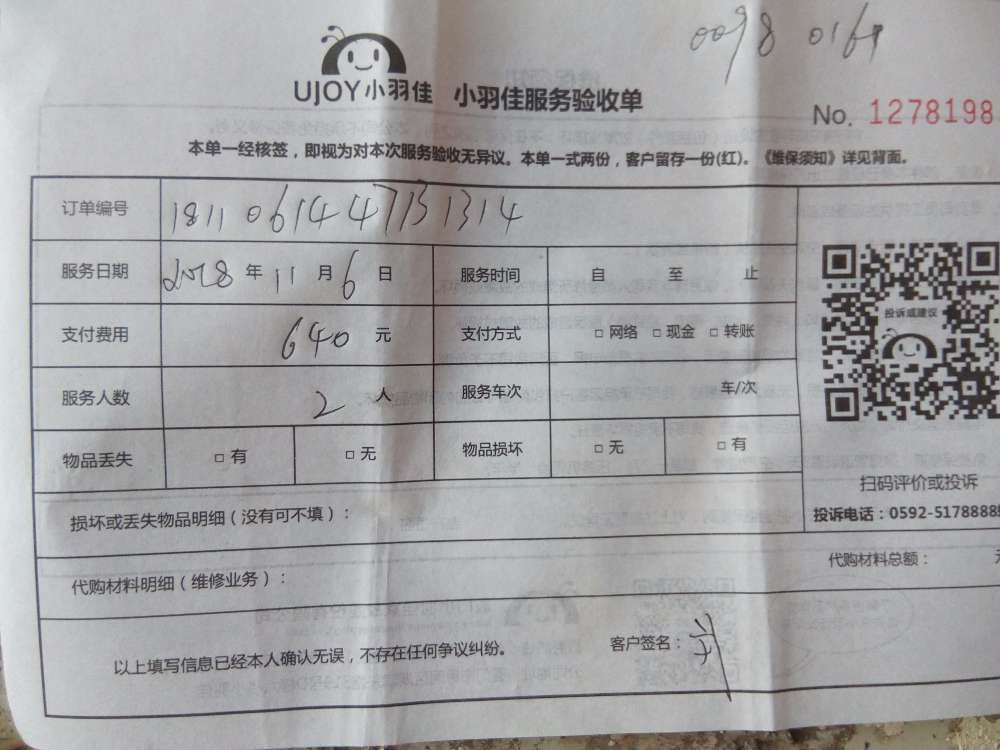 0098 0164
UJOY小羽佳 小羽佳服务验收单
No. 1278198
本单一经核签，即视为对本次服务验收无异议。本单一式两份，客户留存一份(红)。《维保须知》详见背面。
订单编号 181106144771314
服务日期 2018 年 11 月 6 日 服务时间 自 至 止
投诉或建议
支付费用 640 元 支付方式 □ 网络 □ 现金 □ 转账
服务人数 2 人 服务车次 车/次
物品丢失 □ 有 □ 无 物品损坏 □ 无 □ 有
扫码评价或投诉
损坏或丢失物品明细（没有可不填）：
投诉电话：0592-5178888
代购材料明细（维修业务）：
代购材料总额：
以上填写信息已经本人确认无误，不存在任何争议纠纷。 客户签名：